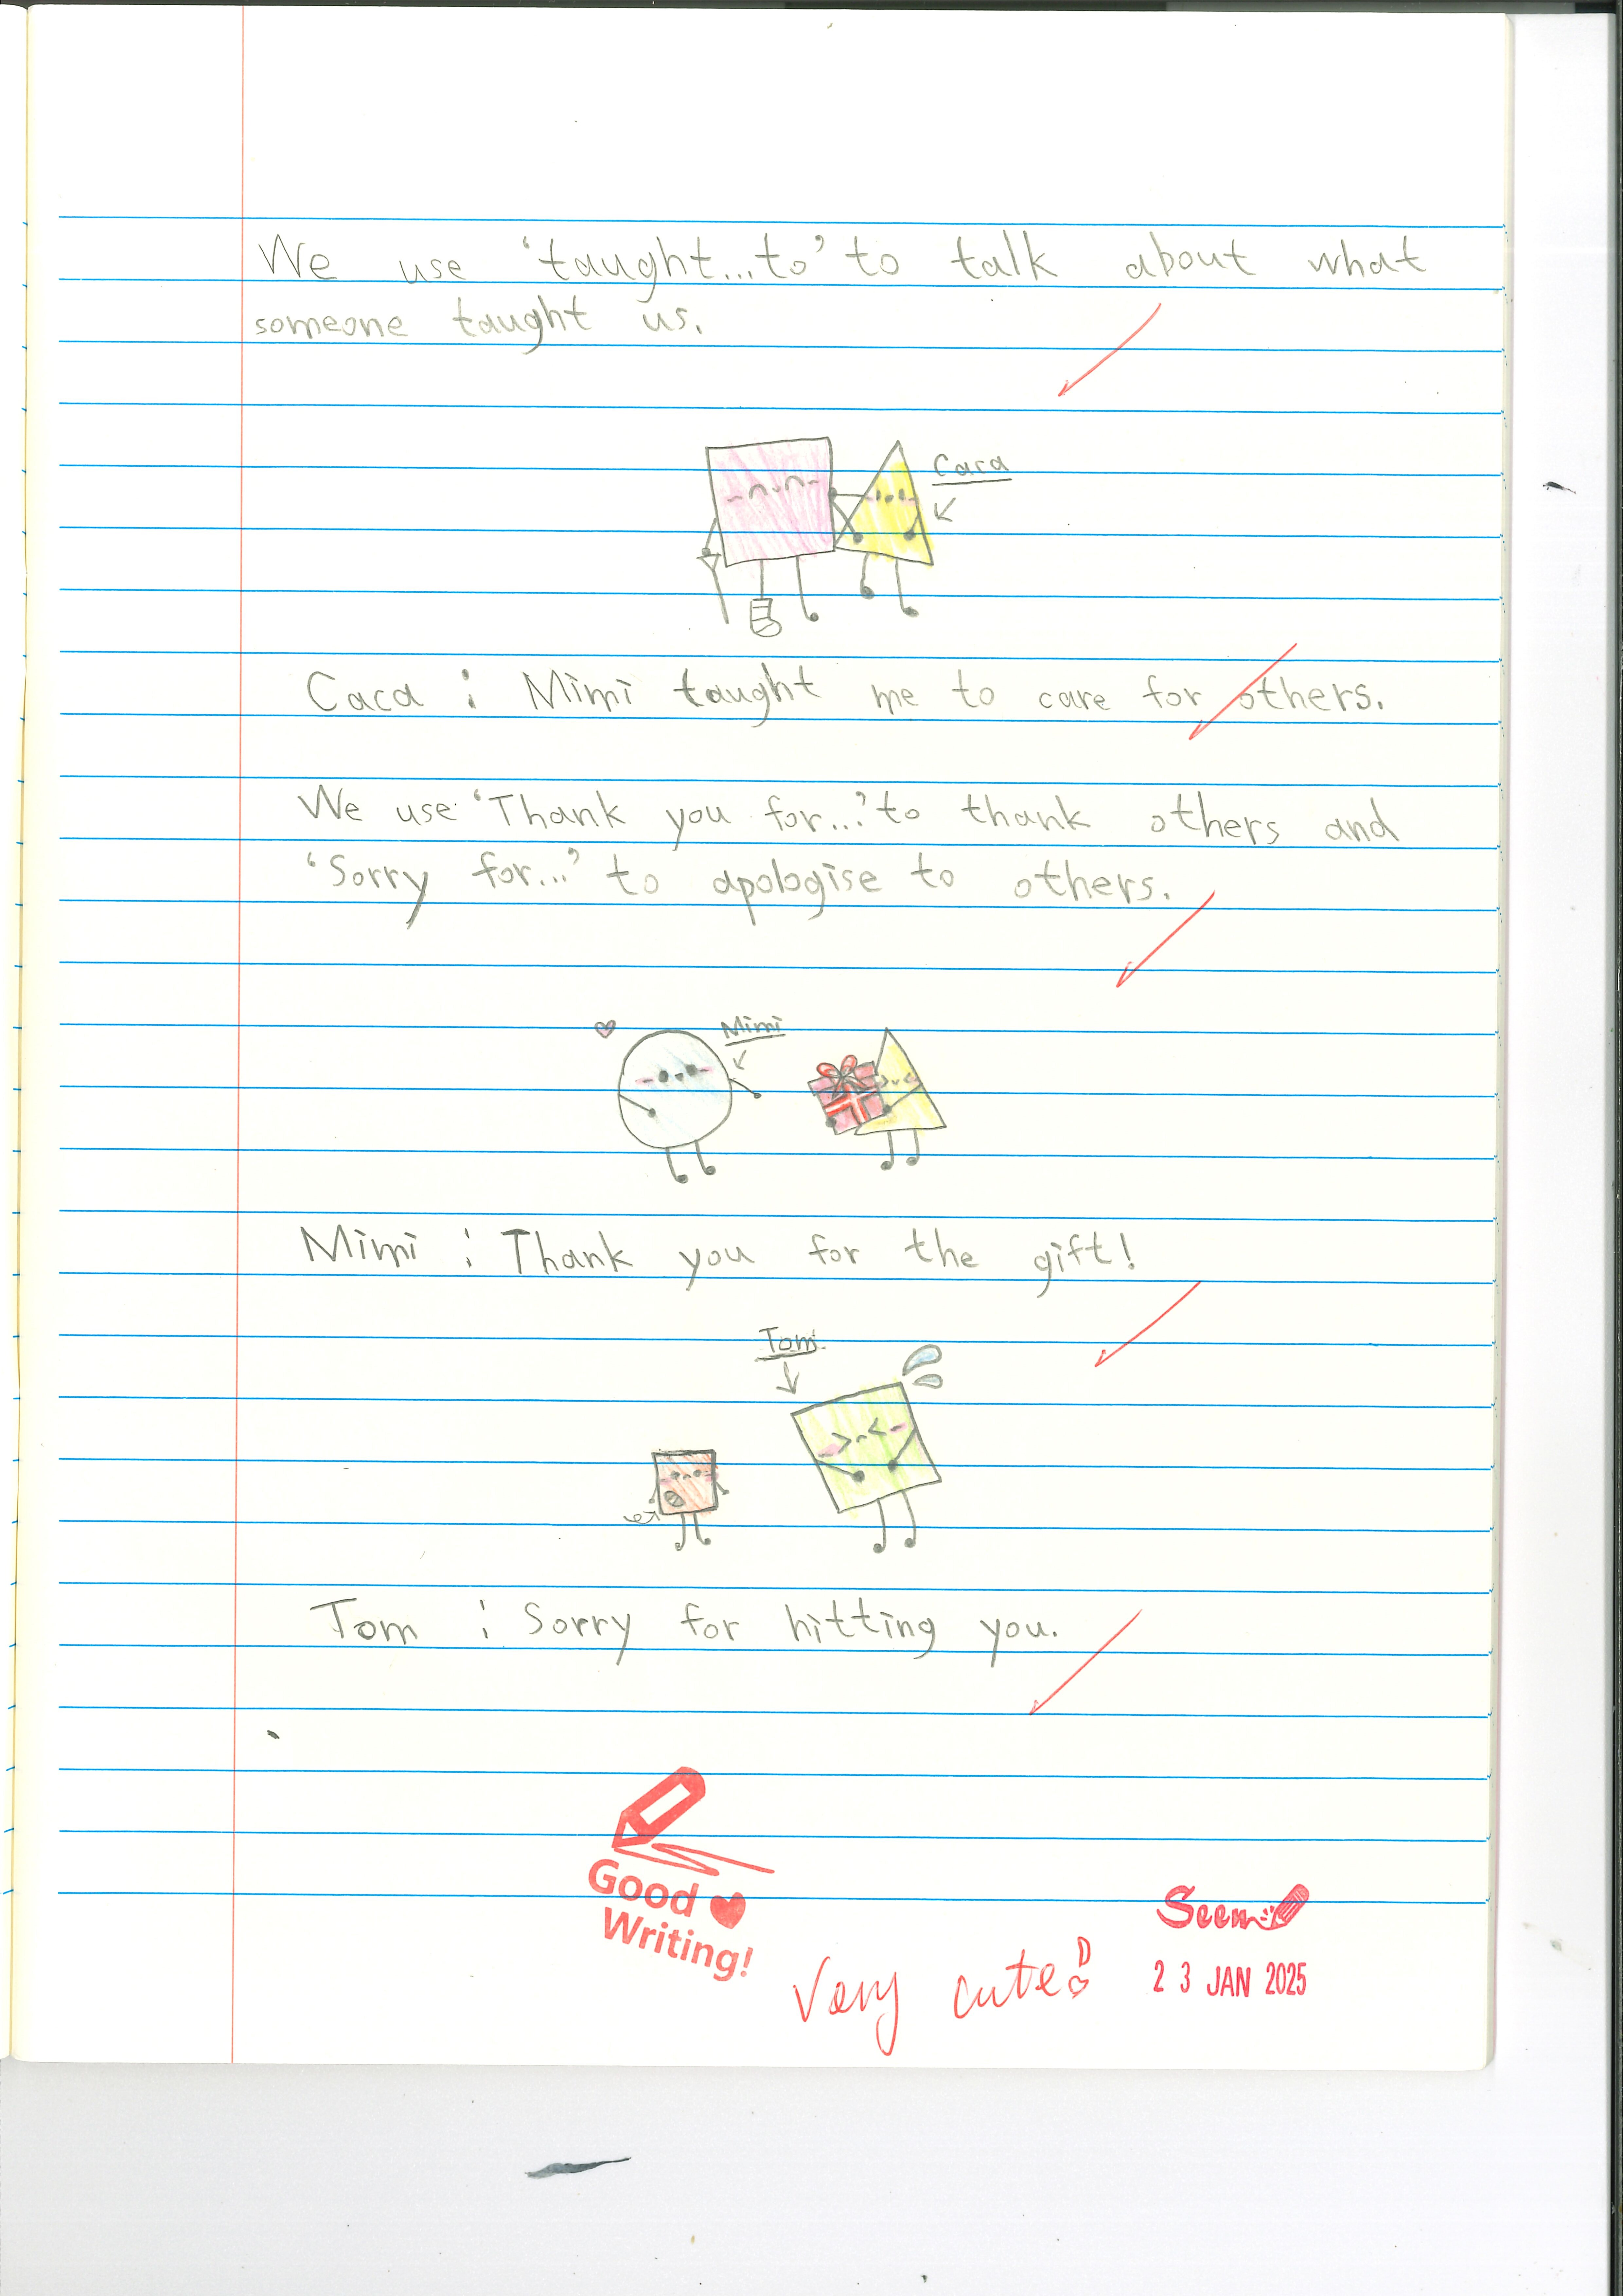 We use 'taught...to' to talk about what
someone taught us.
Caca
Caca : Mimi taught me to care for others.
We use 'Thank you for...' to thank others and
'Sorry for...' to apologise to others.
Mimi
Mimi : Thank you for the gift!
Tom
Tom : Sorry for hitting you.
Good
Writing!
Very cute!
Seen
23 JAN 2025